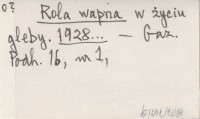 07
Rola wapna w życiu
gleby. 1928... — Gaz.
Podh. 16, nr 1,